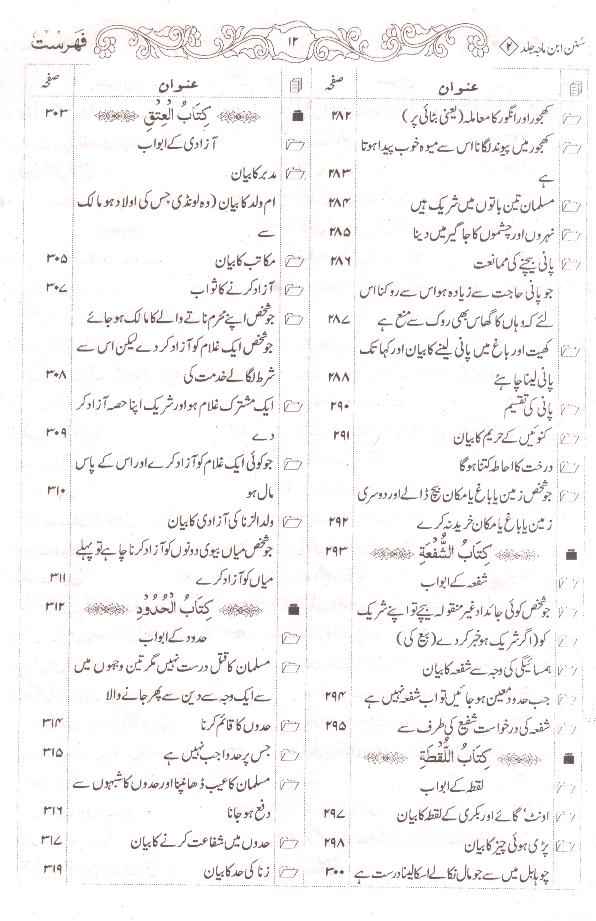 سنن ابن ماجہ جلد ۲
۱۲
فہرست
عنوان صفحہ
کھجور اور انگور کا معاملہ (یعنی بٹائی پر) ۲۸۲
کھجور میں پیوند لگانا اس سے میوہ خوب پیدا ہوتا
ہے ۲۸۳
مسلمان تین باتوں میں شریک ہیں ۲۸۴
نہروں اور چشموں کا جاگیر میں دینا ۲۸۵
پانی بیچنے کی ممانعت ۲۸۶
جو پانی حاجت سے زیادہ ہو اس سے روکنا اس
لئے کہ وہاں کا گھاس بھی روک سے منع ہے ۲۸۷
کھیت اور باغ میں پانی لینے کا بیان اور کہا تک
پانی لینا چاہئے ۲۸۸
پانی کی تقسیم ۲۹۰
کنوئیں کے حریم کا بیان ۲۹۱
درخت کا احاطہ کتنا ہوگا
جو شخص زمین یا باغ یا مکان بیچ ڈالے اور دوسری
زمین یا باغ یا مکان خرید نہ کرے ۲۹۲
كِتَابُ الشُّفْعَةِ ۲۹۳
شفعہ کے ابواب
جو شخص کوئی جائداد غیر منقولہ بیچے تو اپنے شریک
کو (اگر شریک ہو) خبر کر دے (بیع کی)
ہمسائیگی کی وجہ سے شفعہ کا بیان
جب حدود معین ہو جائیں تو اب شفعہ نہیں ہے ۲۹۴
شفعہ کی درخواست شفیع کی طرف سے ۲۹۵
كِتَابُ اللُّقْطَةِ
لقطہ کے ابواب
اونٹ‘ گائے اور بکری کے لقطہ کا بیان ۲۹۷
پڑی ہوئی چیز کا بیان ۲۹۸
چوہا بل میں سے جو مال نکالے اسکا لینا درست ہے ۳۰۰
عنوان صفحہ
كِتَابُ الْعِتْقِ ۳۰۳
آزادی کے ابواب
مدبر کا بیان
ام ولد کا بیان (وہ لونڈی جس کی اولاد ہو مالک
سے
مکاتب کا بیان ۳۰۵
آزاد کرنے کا ثواب ۳۰۷
جو شخص اپنے محرم ناتے والے کا مالک ہو جائے
جو شخص ایک غلام کو آزاد کر دے لیکن اس سے
شرط لگا لے خدمت کی ۳۰۸
ایک مشترک غلام ہو اور شریک اپنا حصہ آزاد کر
دے ۳۰۹
جو کوئی ایک غلام کو آزاد کرے اور اس کے پاس
مال ہو ۳۱۰
ولد الزنا کی آزادی کا بیان
جو شخص میاں بیوی دونوں کو آزاد کرنا چاہے تو پہلے
میاں کو آزاد کرے ۳۱۱
كِتَابُ الْحُدُودِ ۳۱۲
حدود کے ابواب
مسلمان کا قتل درست نہیں مگر تین وجہوں میں
سے ایک وجہ سے دین سے پھر جانے والا
حدوں کا قائم کرنا ۳۱۴
جس پر حد واجب نہیں ہے ۳۱۵
مسلمان کا عیب ڈھانپنا اور حدوں کا شبہوں سے
دفع ہو جانا ۳۱۶
حدوں میں شفاعت کرنے کا بیان ۳۱۷
زنا کی حد کا بیان ۳۱۹